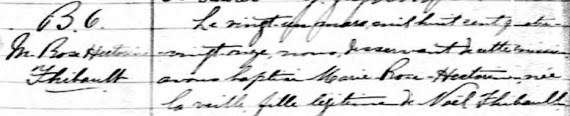 B. 6.
M. Rose Hectorine
Thibault
Le vingt-un mars, mil huit cent quatre-
vingt onze, nous, desservant de cette mission
avons baptisé Marie Rose-Hectorine, née
la veille, fille légitime de Noël Thibault